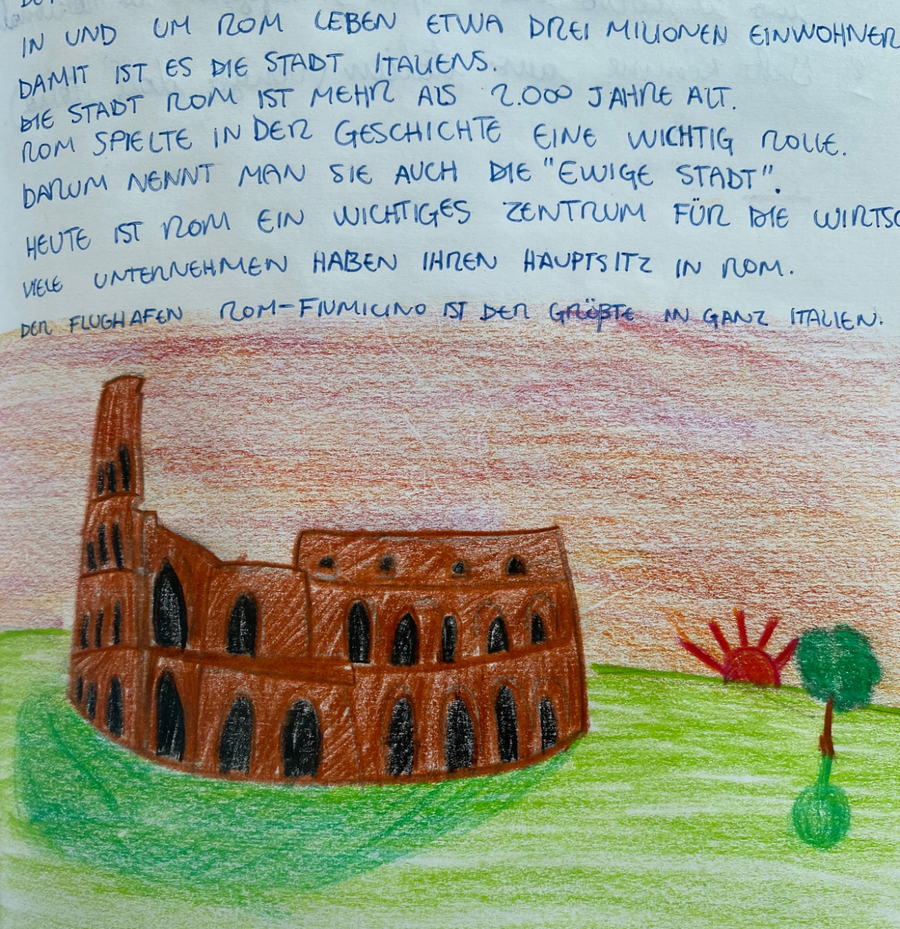 IN UND UM ROM LEBEN ETWA DREI MILIONEN EINWOHNER
DAMIT IST ES DIE STADT ITALIENS.
DIE STADT ROM IST MEHR ALS 2.000 JAHRE ALT.
ROM SPIELTE IN DER GESCHICHTE EINE WICHTIG ROLLE.
DARUM NENNT MAN SIE AUCH DIE "EWIGE STADT".
HEUTE IST ROM EIN WICHTIGES ZENTRUM FÜR DIE WIRTSC
VIELE UNTERNEHMEN HABEN IHREN HAUPTSITZ IN ROM.
DER FLUGHAFEN ROM-FIUMICINO IST DER GRÖßTE IN GANZ ITALIEN.